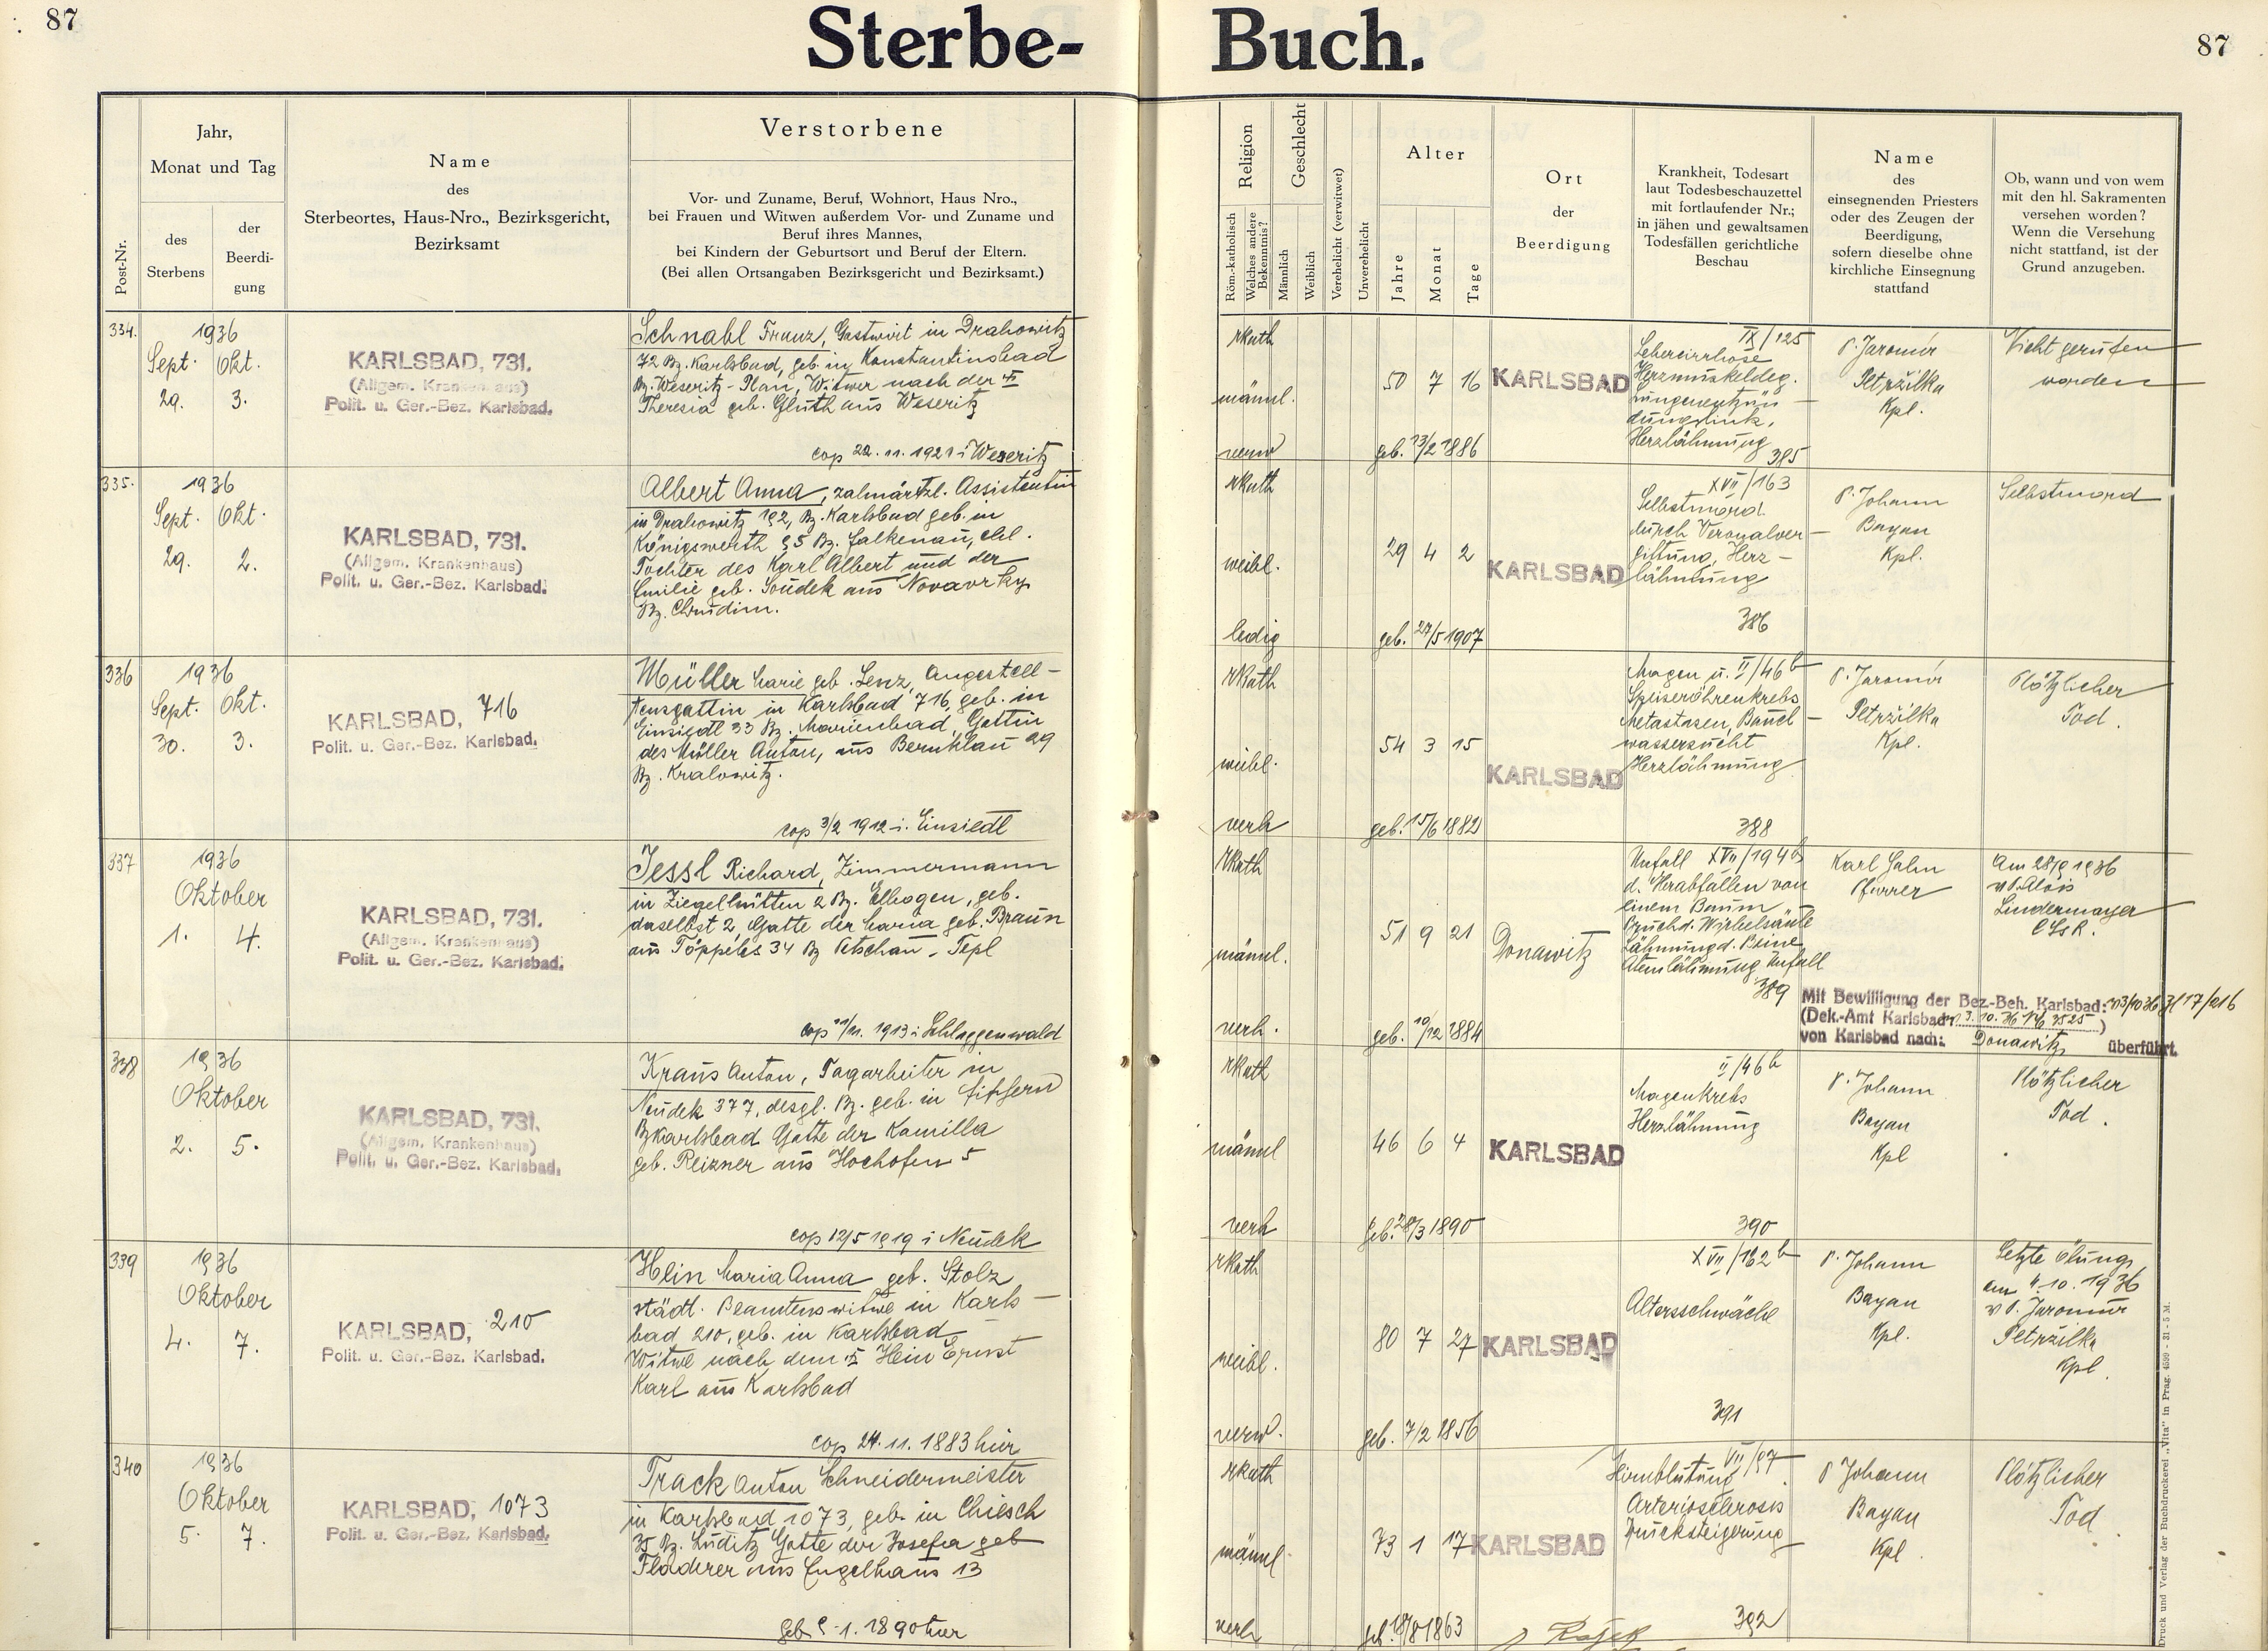 87
Sterbe-
Buch.
87
Post-Nr.
Jahr,
Monat und Tag
des
Sterbens
der
Beerdi-
gung
Name
des
Sterbeortes, Haus-Nro., Bezirksgericht,
Bezirksamt
Verstorbene
Vor- und Zuname, Beruf, Wohnort, Haus Nro.,
bei Frauen und Witwen außerdem Vor- und Zuname und
Beruf ihres Mannes,
bei Kindern der Geburtsort und Beruf der Eltern.
(Bei allen Ortsangaben Bezirksgericht und Bezirksamt.)
Religion
Röm.-katholisch
Welches andere
Bekenntnis?
Geschlecht
Männlich
Weiblich
Verehelicht (verwitwet)
Unverehelicht
Alter
Jahre
Monat
Tage
Ort
der
Beerdigung
Krankheit, Todesart
laut Todesbeschauzettel
mit fortlaufender Nr.;
in jähen und gewaltsamen
Todesfällen gerichtliche
Beschau
Name
des
einsegnenden Priesters
oder des Zeugen der
Beerdigung,
sofern dieselbe ohne
kirchliche Einsegnung
stattfand
Ob, wann und von wem
mit den hl. Sakramenten
versehen worden?
Wenn die Versehung
nicht stattfand, ist der
Grund anzugeben.
334.
1936
Sept. Okt.
29. 3.
KARLSBAD, 731.
(Allgem. Krankenhaus)
Polit. u. Ger.-Bez. Karlsbad.
Schnabl Franz, Gastwirt in Drahowitz
72 Bz. Karlsbad, geb. in Konstantinsbad
Bz. Weseritz - Plan, Witwer nach der
Theresia geb. Gluth aus Weseritz
cop 22.11.1921 i Weseritz
rkath
männl.
verw
50 7 16
geb. 13/2 1886
KARLSBAD
IX/125
Lebercirrhose
Herzmuskeldeg.
Lungenentzün-
dung link.
Herzlähmung
385
P. Jaromír
Petržilka
Kpl.
Nicht gerufen
worden
335.
1936
Sept. Okt.
29. 2.
KARLSBAD, 731.
(Allgem. Krankenhaus)
Polit. u. Ger.-Bez. Karlsbad.
Albert Anna, zahnärztl. Assistentin
in Drahowitz 192, Bz. Karlsbad geb. in
Königswerth 95 Bz. Falkenau, ehl.
Tochter des Karl Albert und der
Emilie geb. Soudek aus
Bz. Chrudim.
rkath
weibl.
ledig
29 4 2
geb. 27/5 1907
KARLSBAD
XVII/163
Selbstmord
durch Veronalver-
giftung, Herz-
lähmung
386
P. Johann
Bayan
Kpl.
Selbstmord
336
1936
Sept. Okt.
30. 3.
KARLSBAD, 716
Polit. u. Ger.-Bez. Karlsbad.
Müller Marie geb. Lenz, Angestell-
tensgattin in Karlsbad 716, geb. in
Einsiedl 33 Bz. Marienbad, Gattin
des Müller Anton, aus Bernklau 29
Bz. Kralowitz.
cop 3/2 1912 i. Einsiedl
rkath
weibl.
verh
54 3 15
geb. 15/6 1882
KARLSBAD
Magen u. II/46b
Speiseröhrenkrebs
Metastasen, Bauch-
wassersucht
Herzlähmung
388
P. Jaromír
Petržilka
Kpl.
Plötzlicher
Tod.
337
1936
Oktober
1. 4.
KARLSBAD, 731.
(Allgem. Krankenhaus)
Polit. u. Ger.-Bez. Karlsbad.
Jessl Richard, Zimmermann
in Ziegelhütten 2 Bz. Elbogen, geb.
daselbst 2, Gatte der Maria geb. Braun
aus Töppeles 34 Bz Petschau - Tepl
cop 11/11. 1913 i Schlaggenwald
rkath
männl.
verh.
51 9 21
geb. 10/12 1884
Donawitz
Unfall XVII/194b
d. Herabfallen von
einem Baum
Bruch d. Wirbelsäule
Lähmung d. Beine
Atemlähmung Unfall
389
Karl Hahn
Pfarrer
Am 28/9 1936
v P. Alois
Lindermayer
CSsR.
Mit Bewilligung der Bez.-Beh. Karlsbad: v 3/10 36 Zl 17/216
(Dek.-Amt Karlsbad v. 3. 10. 36 No 3525)
von Karlsbad nach: Donawitz überführt.
338
1936
Oktober
2. 5.
KARLSBAD, 731.
(Allgem. Krankenhaus)
Polit. u. Ger.-Bez. Karlsbad.
Kraus Anton, Tagarbeiter in
Neudek 377, desgl. Bz. geb. in Fischern
Bz Karlsbad Gatte der Kamilla
geb. Reizner aus Hochofen 5
cop 12/5 1919 i Neudek
rkath
männl
verh
46 6 4
geb. 28/3 1890
KARLSBAD
II/46b
Magenkrebs
Herzlähmung
390
P. Johann
Bayan
Kpl
Plötzlicher
Tod.
339
1936
Oktober
4. 7.
KARLSBAD, 210
Polit. u. Ger.-Bez. Karlsbad.
Hein Maria Anna geb. Stolz
städt. Beamtenswitwe in Karls-
bad 210, geb. in Karlsbad
Witwe nach dem Hein Ernst
Karl aus Karlsbad
cop 24.11.1883 hier
rkath
weibl.
verw.
80 7 27
geb. 7/2 1856
KARLSBAD
XVII/162b
Altersschwäche
391
P. Johann
Bayan
Kpl.
Letzte Ölung
am 4.10.1936
v P. Jaromír
Petržilka
Kpl.
340
1936
Oktober
5. 7.
KARLSBAD, 1073
Polit. u. Ger.-Bez. Karlsbad.
Track Anton Schneidermeister
in Karlsbad 1073, geb. in Chiesch
35 Bz. Luditz Gatte der Josefa geb
Fladerer aus Engelhaus 13
1890 hier
rkath
männl.
verh
73 1 17
geb. 18/8 1863
KARLSBAD
Hirnblutung VII/87
Arteriosclerosis
Drucksteigerung
392
P Johann
Bayan
Kpl.
Plötzlicher
Tod.
Druck und Verlag der Buchdruckerei „Vita" in Prag. 4599 - 31 - 5 M.